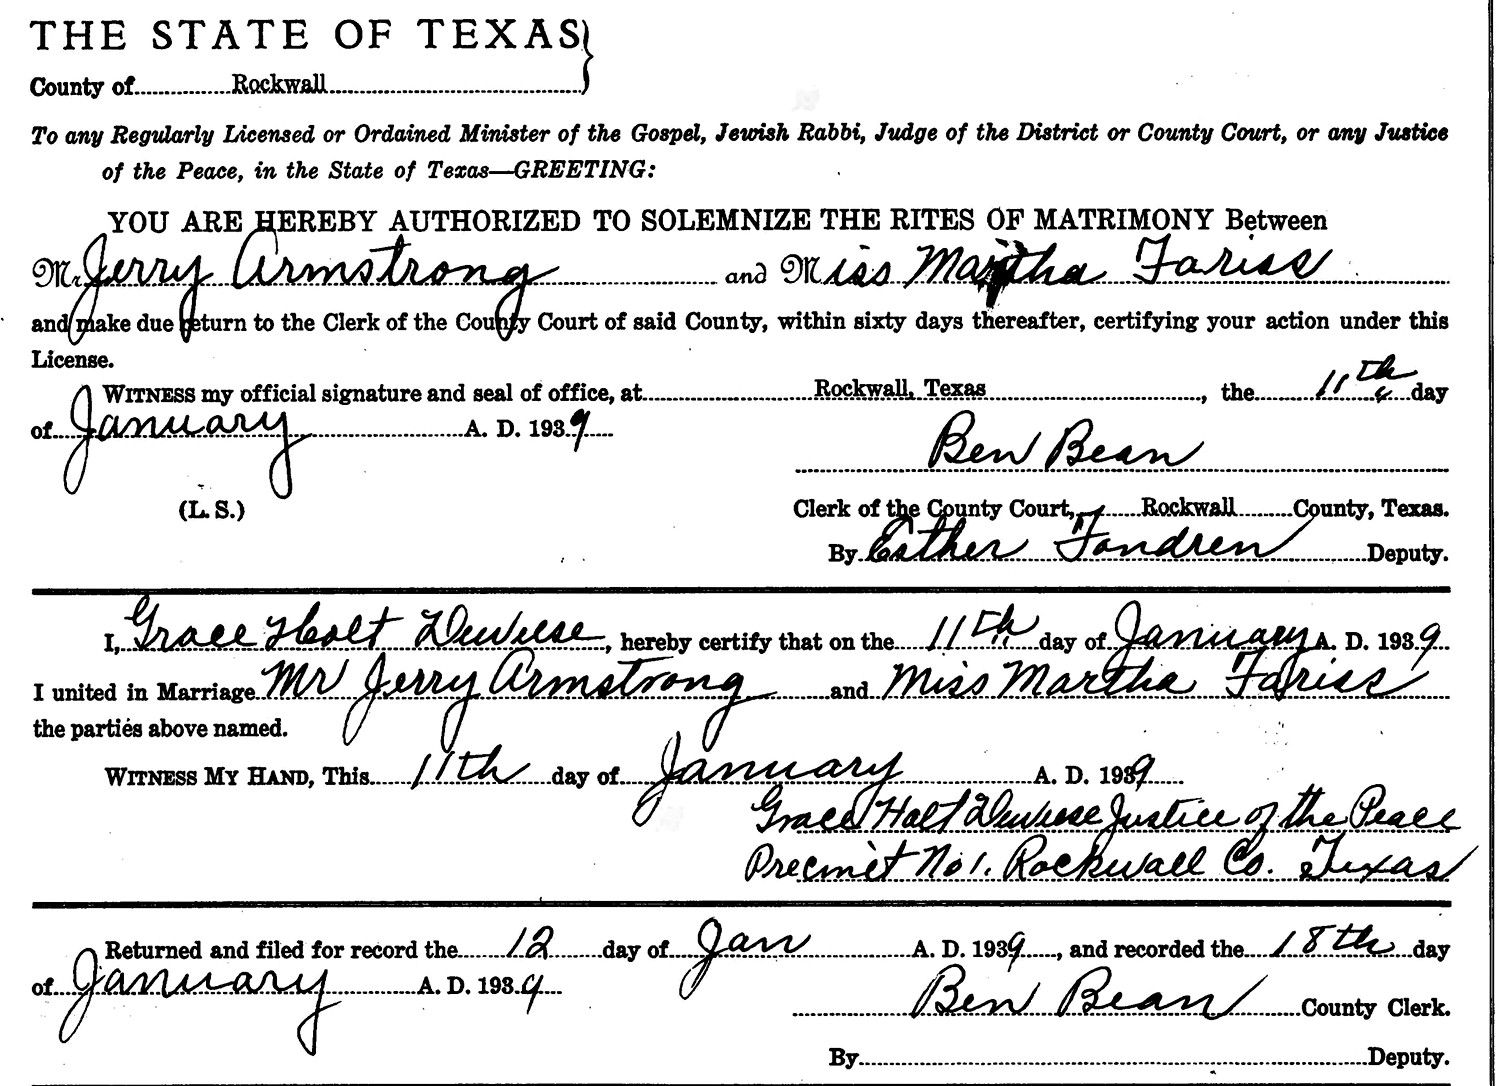 THE STATE OF TEXAS
County of Rockwall
To any Regularly Licensed or Ordained Minister of the Gospel, Jewish Rabbi, Judge of the District or County Court, or any Justice
of the Peace, in the State of Texas—GREETING:
YOU ARE HEREBY AUTHORIZED TO SOLEMNIZE THE RITES OF MATRIMONY Between
Mr. Jerry Armstrong and Miss Martha Fariss
and make due return to the Clerk of the County Court of said County, within sixty days thereafter, certifying your action under this
License.
WITNESS my official signature and seal of office, at Rockwall, Texas, the 11th day
of January A. D. 1939
Ben Bean
(L. S.)
Clerk of the County Court, Rockwall County, Texas.
By Esther Fondren Deputy.
I, Grace Holt Deweese, hereby certify that on the 11th day of January A. D. 1939
I united in Marriage Mr Jerry Armstrong and Miss Martha Fariss
the parties above named.
WITNESS MY HAND, This 11th day of January A. D. 1939
Grace Holt Deweese Justice of the Peace
Precinct No 1. Rockwall Co. Texas
Returned and filed for record the 12 day of Jan A. D. 1939, and recorded the 18th day
of January A. D. 1939
Ben Bean County Clerk.
By Deputy.